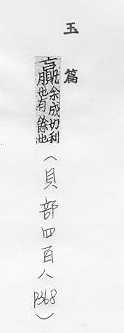 玉篇
贏余成切利
也有餘也
(貝部四百八
p368)